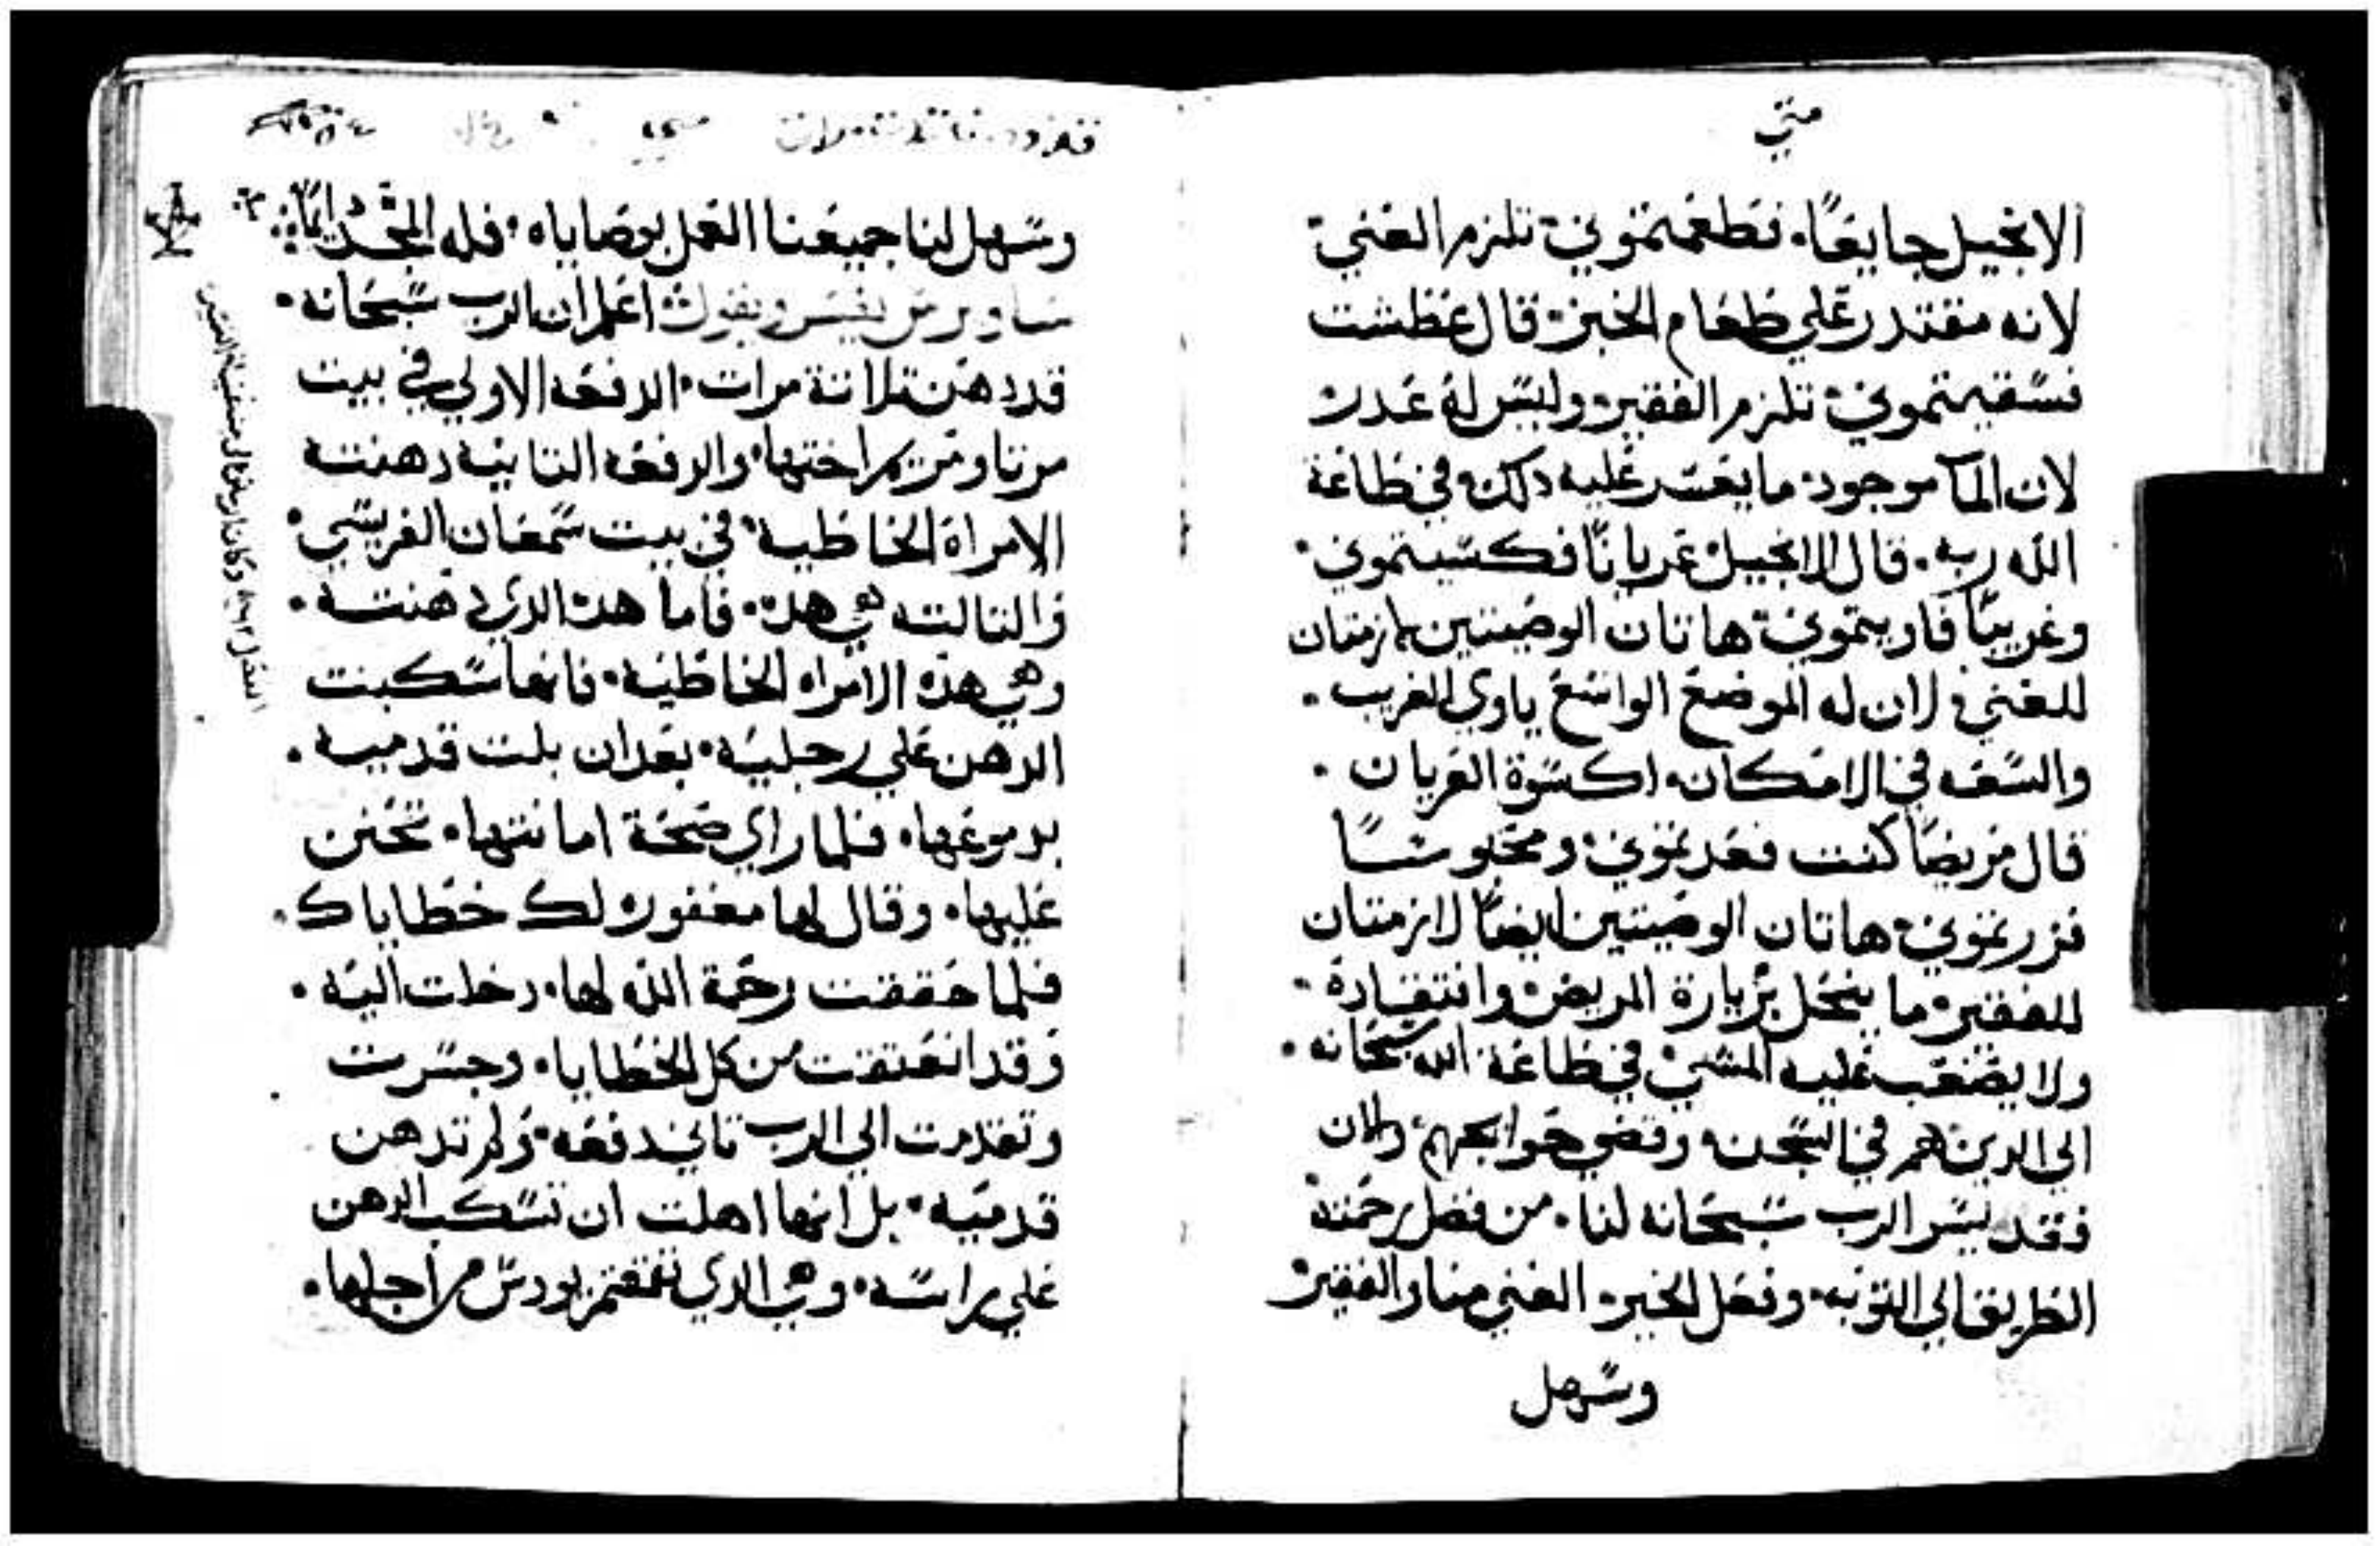 متي
الانجيل جايعًا. فطعمتموني تلزم الغني
لانه مقتدر علي طعام الخبز قال عطشت
فسقيتموني تلزم الفقير وليس له عدر
لان الما موجود ما يعسر عليه دلك في طاعة
الله ربه. قال الانجيل عريانًا فكسيتموني
وغريبًا فاويتموني هاتان الوصيتين لازمتان
للغني لان له الموضع الواسع ياوي الغريب.
والسعه في الامكان اكسوة العريان.
قال مريضًا كنت فعدتموني ومحبوسًا
فزرتموني هاتان الوصيتين ايضًا لازمتان
للفقير ما ينحل بزيارة المريض وافتقادة
ولا يصعب عليه المشي في طاعة الله سبحانه.
الي الدين هم في السجن وقضي حوايجهم ولان
فقد يسر الرب سبحانه لنا. من فضل رحمته
الطريق الي التوبه وفعل الخير. الغني منا والفقير
وسهل
وسهل لنا جميعنا العمل بوصاياه. فله المجد دايمًا
ساويرس يفسر ويقول اعلم ان الرب سبحانه.
قد دهن تلاتة مرات. الدفعه الاولي في بيت
مرتا ومريم اختها. والدفعه التانيه دهنته
الامراة الخاطيه في بيت سمعان الفريسي
والتالته هي هده. فاما هده الدي دهنته.
وهي هده الامراه الخاطيه. فانها سكبت
الدهن علي رجليه. بعد ان بلت قدميه.
بدموعها. فلما راي صحة امانتها. تحنن
عليها. وقال لها مغفوره لك خطاياك.
فلما حققت رحمة الله لها. دخلت اليه.
وقد انعتقت من كل الخطايا. وجسرت
وتقدمت الي الرب تاني دفعه. ولم تدهن
قدميه. بل انها اهلت ان تسكب الدهن
علي راسه. وهي الدي تقمقم يودس من اجلها.